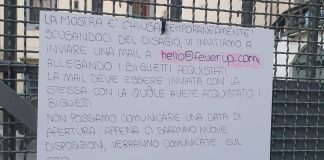 LA MOSTRA E' CHIUSA TEMPORANEAMENTE!
SCUSANDOCI DEL DISAGIO, VI INVITIAMO A
INVIARE UNA MAIL A hello@feverup.com
ALLEGANDO I BIGLIETTI ACQUISTATI.
LA MAIL DEVE ESSERE INVIATA CON LA
STESSA CON LA QUALE AVETE ACQUISTATO I
BIGLIETTI
NON POSSIAMO COMUNICARE UNA DATA DI
APERTURA, APPENA CI SARANNO NUOVE
DISPOSIZIONI, VERRANNO COMUNICATE SUL